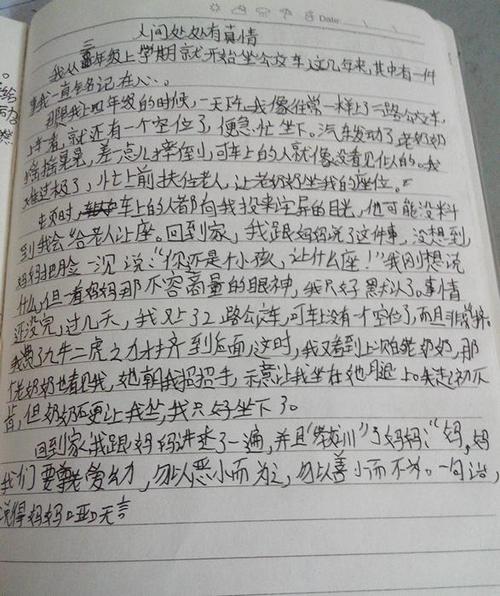 Date:
人间处处有真情
我从三年级上学期就开始坐公交车,这几年来,其中有一件
事我一直铭记在心。
那是我上四年级的时候,一天下午我像往常一样上了二路公交车,
上车看,就还有一个空位了,便急忙坐下。汽车发动了,老奶奶
摇摇晃晃,差一点儿摔倒,可车上的人就像没看见似的。我
难过极了,忙上前扶住老人,让老奶奶坐我的座位。
顿时,车上的人都向我投来诧异的目光,他可能没料
到我会给老人让座。回到家,我跟妈妈说了这件事,没想到,
妈妈把脸一沉说:“你还是个小孩,让什么座!”我刚想说
什么,但一看妈妈那不容商量的眼神,我只好默认了。事情
还没完,过几天,我又上了2路公交车,可车上没有一个空位了,而且非常挤,
我费了九牛二虎之力才挤到后面,这时,我又看到上次的老奶奶,那
个老奶奶也看见我,她朝我招招手,示意让我坐在她腿上。我起初不
肯,但奶奶硬要让我坐,我只好坐下了。
回到家,我跟妈妈讲述了一遍,并且“教训”了妈妈:“妈妈,
我们要尊老爱幼,勿以恶小而为之,勿以善小而不为。一句话,
说得妈妈哑口无言